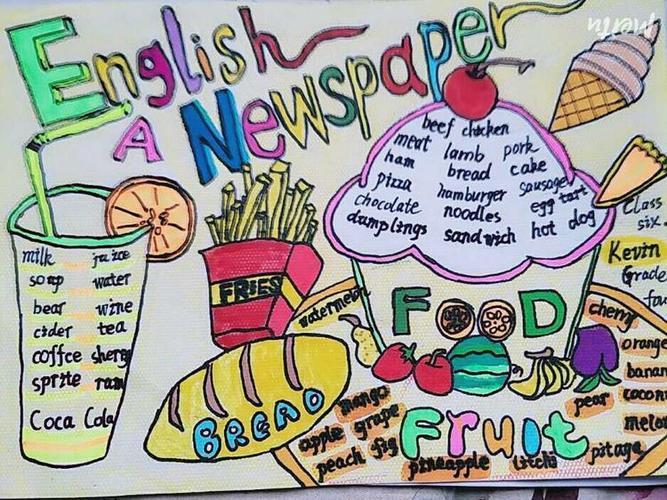 English
A Newspaper
beef chicken
meat lamb pork
ham bread cake
pizza hamburger sausage
chocolate noodles egg tart
dumplings sandwich hot dog
Class
six.
Kevin
Grade
milk juice
soop water
bear wine
cider tea
coffce sherry
sprite ram
Coca Cola
FRIES
watermelon
FOOD
cherry
orange
banan
coconu
melon
pear
pitaya
BREAD
mango
apple grape
peach fig
Fruit
pineapple litchi